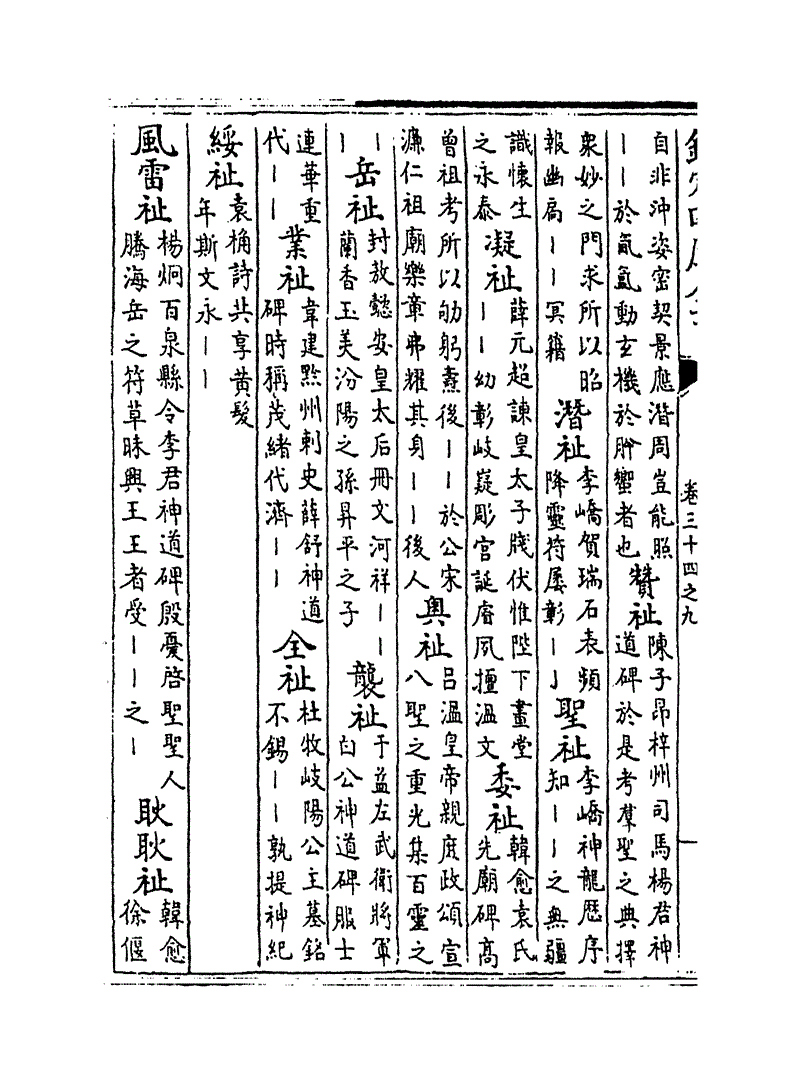 卷三十四之九
自非沖姿密契景應潛周豈能照
丨丨於氤氳動玄機於肸蠁者也
贊祉
陳子昂梓州司馬楊君神
道碑於是考羣聖之典擇
衆妙之門求所以昭
報幽扃丨丨冥籍
潛祉
李嶠賀瑞石表頻
降靈符屢彰丨丨
聖祉
李嶠神龍厯序
知丨丨之無疆
識懷生
之永泰
凝祉
薛元超諫皇太子牋伏惟陛下畫堂
丨丨幼彰岐嶷彫宮誕睿夙擅溫文
委祉
韓愈袁氏
先廟碑高
曾祖考所以劬躬燾後丨丨於公宋
濂仁祖廟樂章弗耀其身丨丨後人
奧祉
呂溫皇帝親庶政頌宣
八聖之重光集百靈之
丨
丨
岳祉
封敖懿安皇太后冊文河祥丨丨
蘭香玉美汾陽之孫昇平之子
襲祉
于益左武衛將軍
白公神道碑服士
連華重
代丨丨
業祉
韋建黔州刺史薛舒神道
碑時稱茂緒代濟丨丨
全祉
杜牧岐陽公主墓銘
不錫丨丨孰提神紀
綏祉
袁桷詩共享黃髮
年斯文永丨丨
風雷祉
楊炯百泉縣令李君神道碑殷憂啓聖聖人
騰海岳之符草昧興王王者受丨丨之丨
耿耿祉
韓愈
徐偃